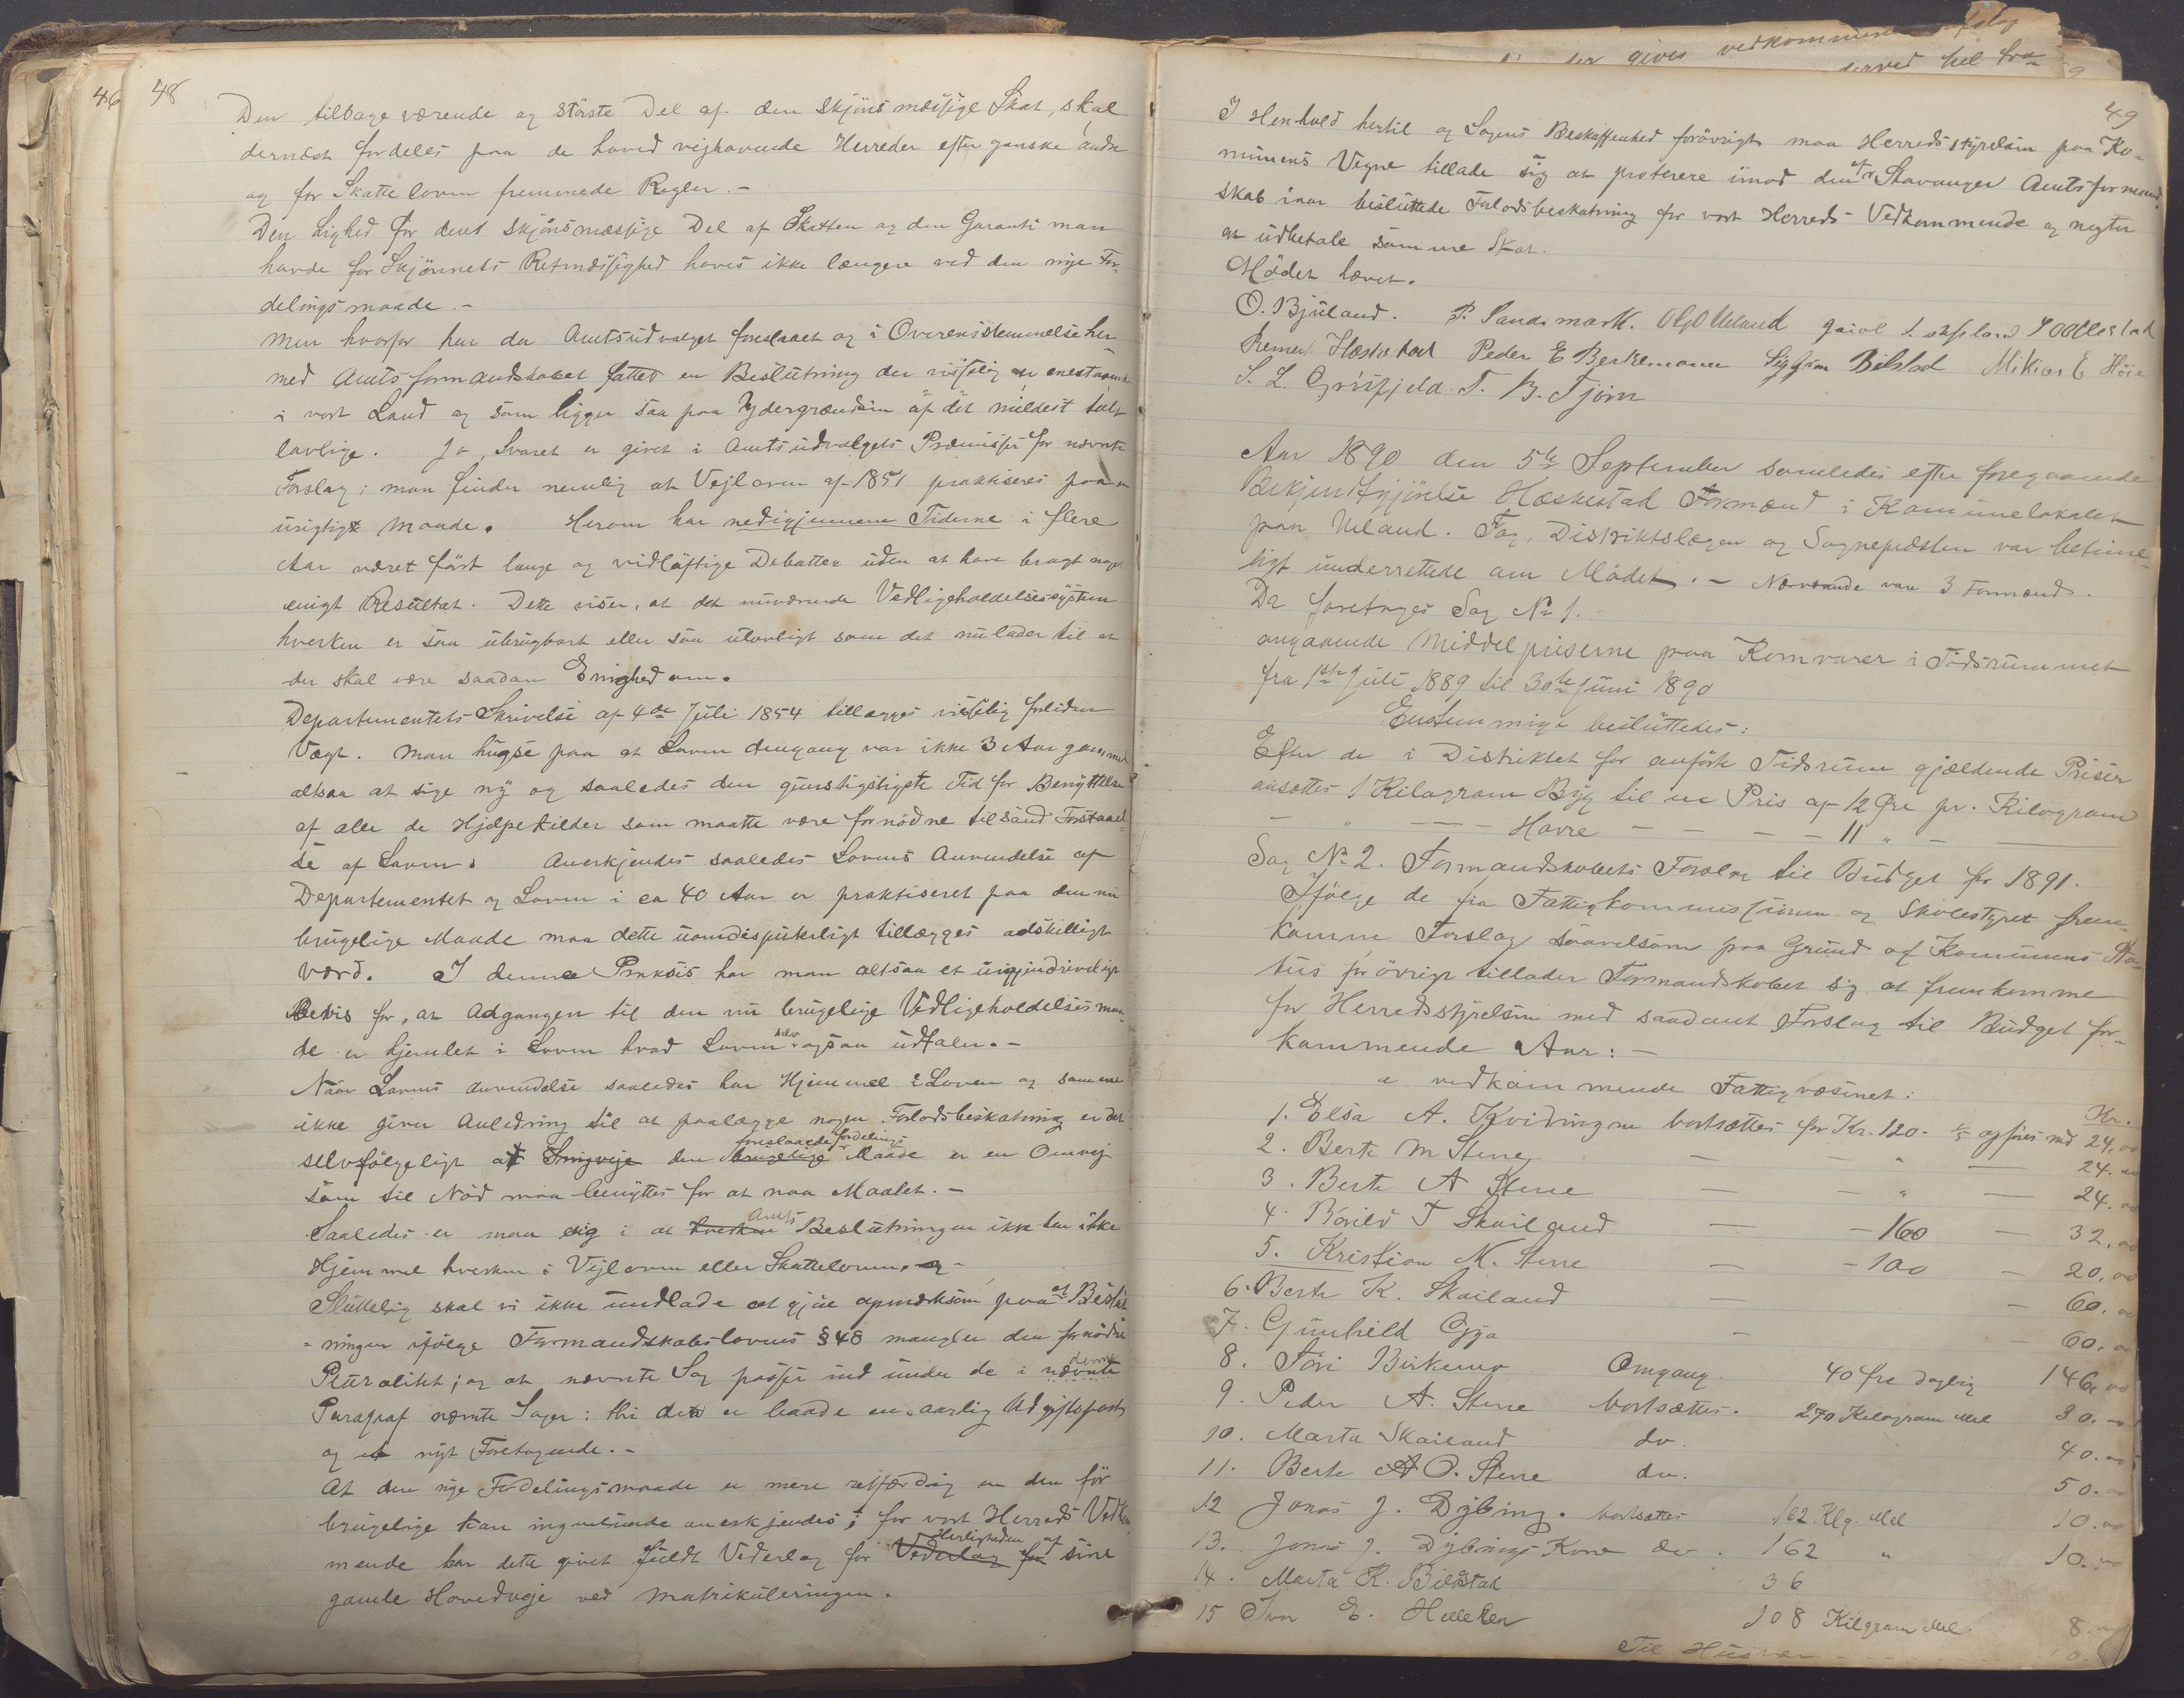 46
48
Den tilbageværende og störste Del af den skjönsmæssige Skat, skal
dernæst fordeles paa de hovedveihavende Herreder efter ganske andre
og for Skatteloven fremmede Regler. -
Den Lighed for den skjönsmæssige Del af Skatten og den Garanti man
havde for Skjönnets Retmæssighed haves ikke længere ved den nye For-
delingsmaade. -
Men hvorfor har da Amtsudvalget foreslaaet og i Overensstemmelse her
med Amtsformandskabet fattet en Beslutning der vistnok er enestaaende
i vort Land og som ligger saa paa Ydergrændsen af det mildest talt
lovlige. Jo, Svaret er givet i Amtsudvalgets Præmisser for nævnte
Forslag; man finder nemlig at Vejloven af 1851 praktiseres paa en
urigtigt Maade. Herom har nedigjennem Tiderne i flere
Aar været fört lange og vidlöftige Debatter uden at have bragt noget
enigt Resultat. Dette viser, at det nuværende Vedligeholdelsessystem
hverken er saa ubrugbart eller saa ulovligt som det nu lader til at
der skal være saadan Enighed om.
Departementets Skrivelse af 4de Juli 1854 tillægges
Vægt. Man huske paa at Loven dengang var ikke 3 Aar gammel
altsaa at sige ny og saaledes den gunstigstigste Tid for Benyttelse
af alle de Hjælpekilder som maatte være fornödne til sand Forstaael-
se af Loven. Anerkjendes saaledes Lovens Anvendelse af
Departementet og Loven i ca 40 Aar er praktiseret paa den nu
brugelige Maade maa dette uomdisputerligt tillægges adskilligt
Værd. I denne Praksis har man altsaa et uigjendriveligt
Bevis for, at Adgangen til den nu brugelige Vedligeholdelsesmaa-
de er hjemlet i Loven hvad Loven selv ogsaa udtaler. -
Naar Lovens Anvendelse saaledes har Hjemmel i Loven og samme
ikke giver Anledning til at paalægge nogen Forlodsbeskatning er det
selvfölgeligt at Smigveje den brugelige foreslaaede fordelings Maade er en Omvej
som til Nöd maa benyttes for at naa Maalet. -
Saaledes er man enig i at hverken Amts Beslutningen ikke har ikke
Hjemmel hverken i Vejloven eller Skatteloven. og -
Sluttelig skal vi ikke undlade at gjöre opmærksom paa at Beslut
- ningen ifölge Formandskabslovens § 48 mangler den fornödne
Pluralitet; og at nævnte Sag passer ind under de i nævnte denne
Paragraf nævnte Sager: thi det er baade en aarlig Udgiftspost
og et nyt Foretagende. -
At den nye Fordelingsmaade er mere retfærdig en den för
brugelige kan ingenlunde anerkjendes; for vort Herreds Vedkom
mende har dette givet fuldt Vederlag for Vederlag for Herligheden af sine
gamle Hovedveje ved Matrikuleringen.
gives vedkommende
49
I Henhold hertil og Sagens Beskaffenhed forövrigt maa Herredsstyrelsen paa Ko-
munens Vegne tillade sig at protestere imod den af Stavanger Amtsformand-
skab iaar besluttede Forlodsbeskatning for vort Herreds-Vedkommende og negter
at udbetale samme Skat.
Mödet hævet.
O. Bjuland. P. Sandsmark. Ole O Ueland
Hæskestad Peder E Birkemoen Bilstad Mikias E Höie
S. L. Grösfjeld. T. B. Tjörn
Aar 1890 den 5te September samledes efter foregaaende
Bekjendtgjörelse Hæskestad Formænd i Komunelokalet
paa Ueland. Fog, Distriktslægen og Sognepræsten var betime-
ligt underrettede om Mödet. - Nærværende var 3 Formænd.
Da foretoges Sag No 1.
angaaende Middelpriserne paa Kornvarer i Tidsrummet
fra 1ste Juli 1889 til 30te Juni 1890
Enstemmigt besluttedes:
Efter de i Distriktet for anförte Tidsrum gjældende Priser
ansættes 1 Kilogram Byg til en Pris af 12 Öre pr. Kilogram
— " — — Havre — — — — 11 " — —
Sag No 2. Formandskabets Forslag til Budget for 1891.
Ifölge de fra Fattigkommissionen og Skolestyret frem-
komne Forslag saavelsom paa Grund af Kommunens Sta-
tus for övrigt tillader Formandskabet sig at fremkomme
for Herredsstyrelsen med saadant Forslag til Budget for-
kommende Aar: -
a vedkommende Fattigvæsenet:
Kr.
1. Elsa A. Kvidingmo bortsættes for Kr. 120. 1/5 opföres med 24,00
2. Berte M Stene — — " — 24.00
3. Berte A Stene — — " — 24.00
4. Bovild T Skailand — — 160 — 32,00
5. Kristian N. Stene — — 100 — 20,00
6. Berte K. Skailand — — 60.00
7. Gunhild Gya — 60.00
8. Töri Birkemo Omgang. 40 Öre daglig 146,00
9. Peder A. Stene bortsættes. 270 Kilogram Mel 30.00
10. Marta Skailand do. 40.00
11. Berte A O. Stene do. 50.00
12 Jonas J. Dybing. bortsættes 162 Klg. Mel 10.00
13. Jonas J. Dybings Kone do. 162 " 10.00
14. Marta K. Bilstad 36
15 Iver E. Helleren 108 Kilgram Mel. 8.
Til Husvær